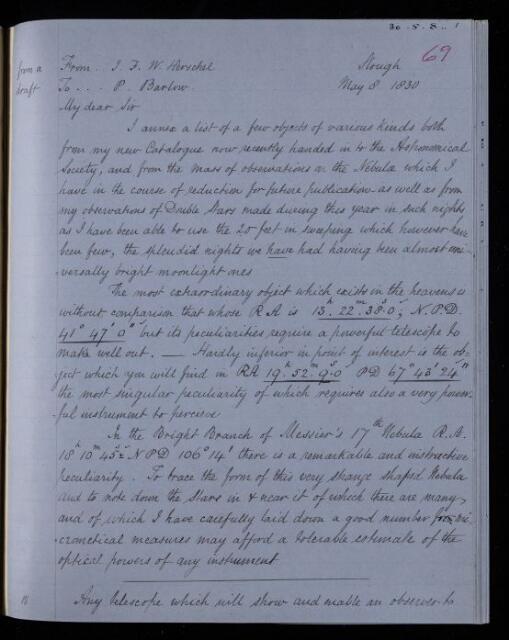 30.5.8.. 1
69
from a
draft
From. J. F. W. Herschel Slough
To ... P. Barlow. May 8. 1830
My dear Sir
I annex a list of a few objects of various kinds both
from my new Catalogue now recently handed in to the Astronomical
Society, and from the mass of observations on the Nebulæ which I
have in the course of reduction for future publication as well as from
my observations of Double Stars made during this year in such nights
as I have been able to use the 20 feet in sweeping which however have
been few, the splendid nights we have had having been almost uni-
versally bright moonlight ones
The most extraordinary object which exists in the heavens is
without comparison that whose RA is 13h. 22m. 38s.0; N.P.D.
41° 47' 0" but its peculiarities require a powerful telescope to
make well out. — Hardly inferior in point of interest is the ob-
ject which you will find in RA 19h. 52m. 9s.0 PD 67° 43' 24"
the most singular peculiarity of which requires also a very power-
ful instrument to perceive
In the Bright Branch of Messier's 17th Nebula R.A.
18h 10m 45s± NPD 106° 14' there is a remarkable and instructive
peculiarity. To trace the form of this very strange shaped Nebula
and to note down the stars in & near it of which there are many
and of which I have carefully laid down a good number from mi-
crometical measures may afford a tolerable estimate of the
optical powers of any instrument
Any telescope which will show and enable an observer to